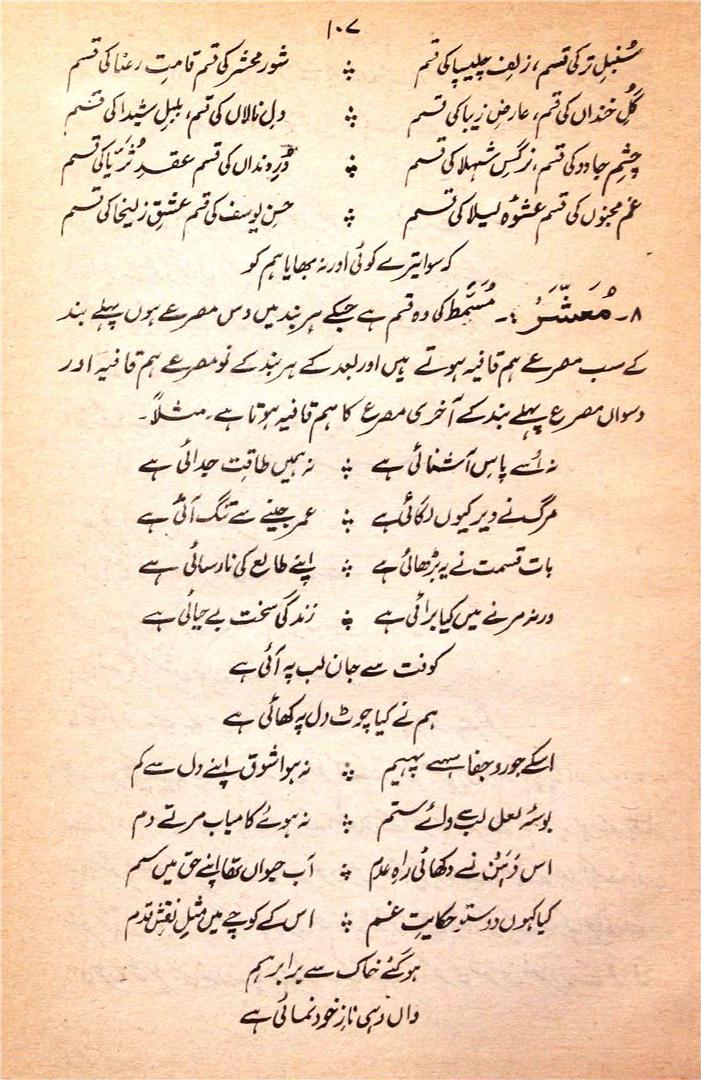 ۱۰۷
سُنبلِ تر کی قسم، زلفِ چلیپا کی قسم ؞ شورِ محشر کی قسم قامتِ رعنا کی قسم
گلِ خنداں کی قسم، عارضِ زیبا کی قسم ؞ دلِ نالاں کی قسم، بلبلِ شیدا کی قسم
چشمِ جادو کی قسم، نرگسِ شہلا کی قسم ؞ دُرِّ دنداں کی قسم عقدِ ثُریّا کی قسم
غمِ مجنوں کی قسم عشوۂ لیلا کی قسم ؞ حسنِ یوسف کی قسم عشقِ زلیخا کی قسم
کہ سوا تیرے کوئی اور نہ بھایا ہم کو
۸۔ مُعَشَّرْ :۔ مُسَمَّط کی وہ قسم ہے جسکے ہر بند میں دس مصرعے ہوں پہلے بند
کے سب مصرعے ہم قافیہ ہوتے ہیں اور بعد کے ہر بند کے نو مصرعے ہم قافیہ اور
دسواں مصرع پہلے بند کے آخری مصرع کا ہم قافیہ ہوتا ہے۔ مثلاً۔
نہ اُسے پاسِ آشنائی ہے ؞ نہ ہمیں طاقتِ جدائی ہے
مرگ نے دیر کیوں لگائی ہے ؞ عمر جینے سے تنگ آئی ہے
بات قسمت نے یہ بڑھائی ہے ؞ اپنے طالع کی نارسائی ہے
ورنہ مرنے میں کیا برائی ہے ؞ زندگی سخت بے حیائی ہے
کوفت سے جان لب پہ آئی ہے
ہم نے کیا چوٹ دل پہ کھائی ہے
اسکے جور و جفا سہے پیہم ؞ نہ ہوا شوق اپنے دل سے کم
بوسۂ لعل لب پے وائے ستم ؞ نہ ہوئے کامیاب مرتے دم
اس دَہَن نے دکھائی راہِ عدم ؞ آب حیواں تھا اپنے حق میں سم
کیا کہوں دوستو حکایتِ غم ؞ اس کے کوچے میں مثلِ نقشِ قدم
ہو گئے خاک سے برابر ہم
واں وہی نازِ خود نمائی ہے